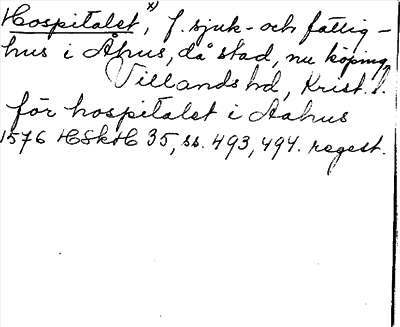 Hospitalet, x) f. sjuk- och fattig-
hus i Åhus, då stad, nu köping,
Villands hd, Krist. l.
för hospitalet i Aahus
1576 HSkH 35, ss. 493, 494. regest.